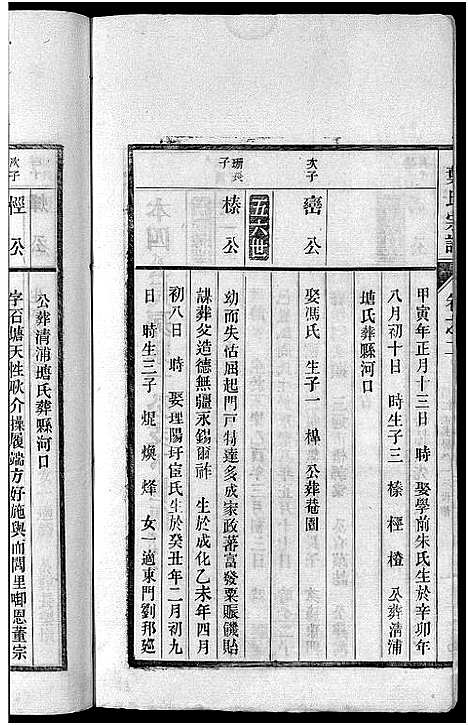 葉氏宗譜
卷之二
甲寅年正月十三日 時 娶學前朱氏生於辛卯年
八月初十日 時生子三 榛 桱 橙 公葬清浦
塘氏葬縣河口
次子
巒公
娶馮氏 生子一 樺 公葬菴園
五六世
珊長子
榛公
幼而失怙屈起門戸特達多成家政蕃富發粟賑饑貽
謀葬父造德無疆永錫爾祚 生於成化乙未年四月
初八日 時 娶理陽圩宦氏生於癸丑年二月初九
日 時生三子 焜 煥 烽 女一 適東門劉邦廵
次子
桱公
字石塘天性耿介操履端方好施與而閭里啣恩董宗
公葬清浦塘氏葬縣河口